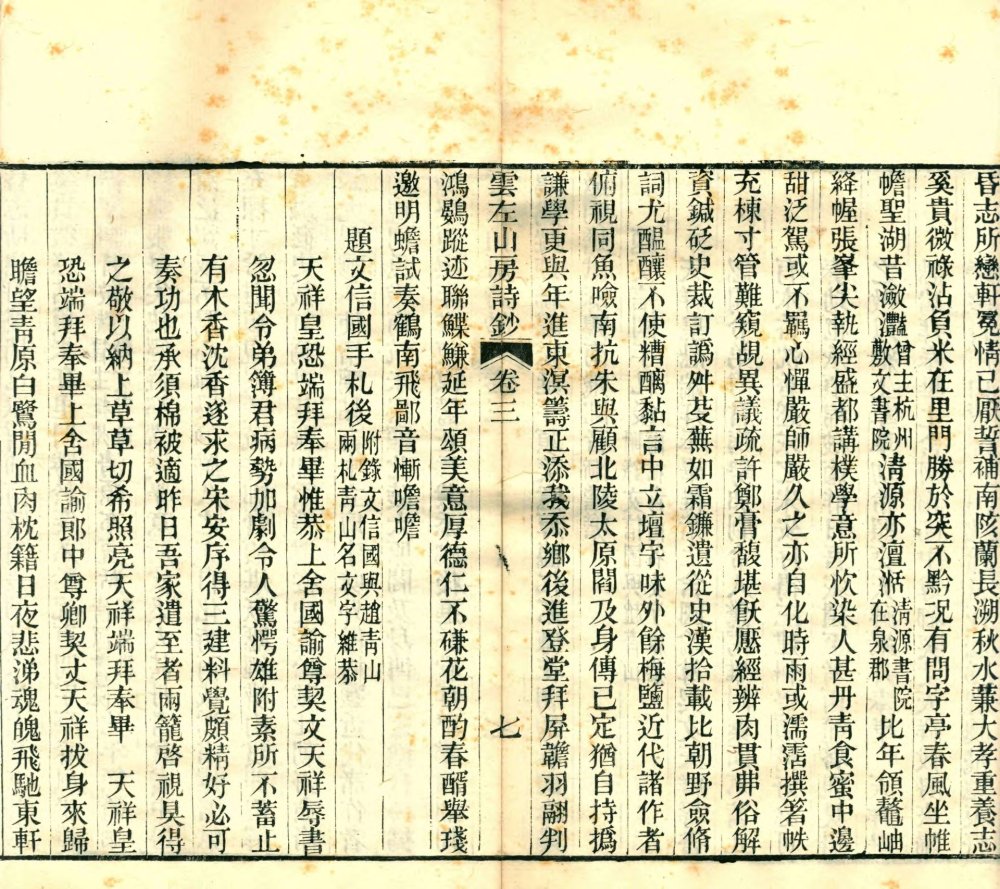 昏志所戀軒冕情已厭誓補南陔蘭長溯秋水蒹大孝重養志
奚貴微祿沾負米在里門勝於突不黔況有問字亭春風坐帷
幨聖湖昔瀲灩曾主杭州敷文書院清源亦澶湉清源書院在泉郡比年領鼇岫
絳幄張峯尖執經盛都講樸學意所忺染人甚丹青食蜜中邊
甜泛駕或不羈心憚嚴師嚴久之亦自化時雨或濡霑撰箸帙
充棟寸管難窺覘異議疏許鄭膏馥堪飫厭經辨肉貫弗俗解
資鍼砭史裁訂譌舛芟蕪如霜鐮遺從史漢拾載比朝野僉脩
詞尤醖釀不使糟醨黏言中立壇宇味外餘梅鹽近代諸作者
俯視同魚噞南抗朱與顧北陵太原閻及身傳已定猶自持撝
謙學更與年進東溟籌正添我忝鄉後進登堂拜屏襜羽翮判
雲左山房詩鈔 卷三 七
鴻鷃蹤迹聯鰈鰜延年頌美意厚德仁不磏花朝酌春醑舉琖
邀明蟾試奏鶴南飛鄙音慚噡噡
題文信國手札後附錄文信國與趙青山兩札青山名文字維恭
天祥皇恐端拜奉畢惟恭上舍國諭尊契文天祥辱書
忽聞令弟簿君病勢加劇令人驚愕雄附素所不蓄止
有木香沈香遂求之宋安序得三建料覺頗精好必可
奏功也承須棉被適昨日吾家遣至者兩籠啓視具得
之敬以納上草草切希照亮天祥端拜奉畢 天祥皇
恐端拜奉畢上舍國諭郎中尊卿契丈天祥拔身來歸
瞻望青原白鷺閒血肉枕籍日夜悲涕魂魄飛馳東軒